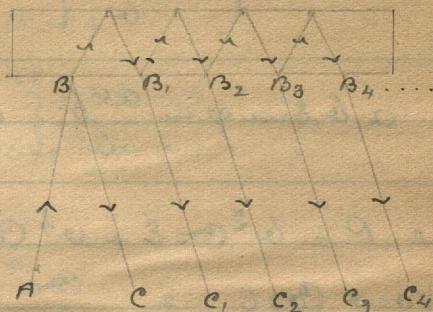 B B₁ B₂ B₃ B₄ .....
A C C₁ C₂ C₃ C₄